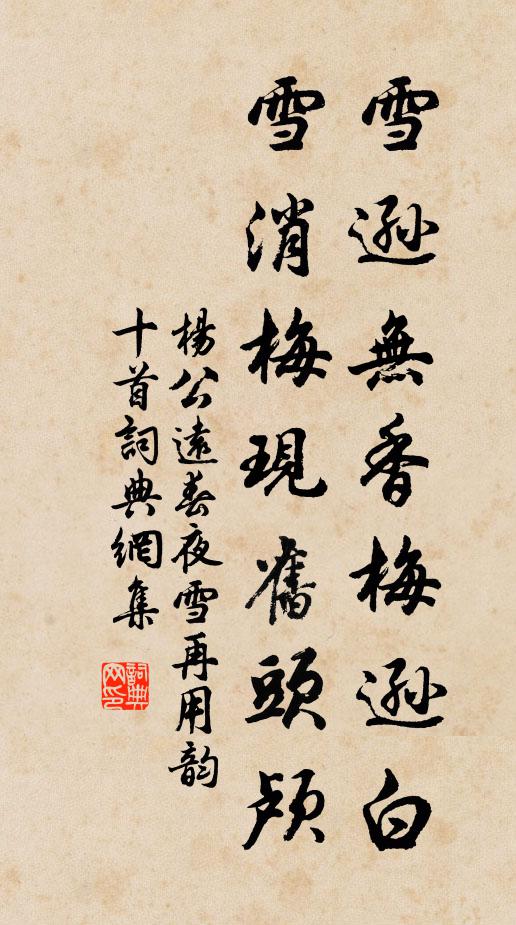 雪遜無香梅遜白
雪消梅現舊頭顱
楊公遠春夜雪再用韵
十首詞典網集
詞典
网印